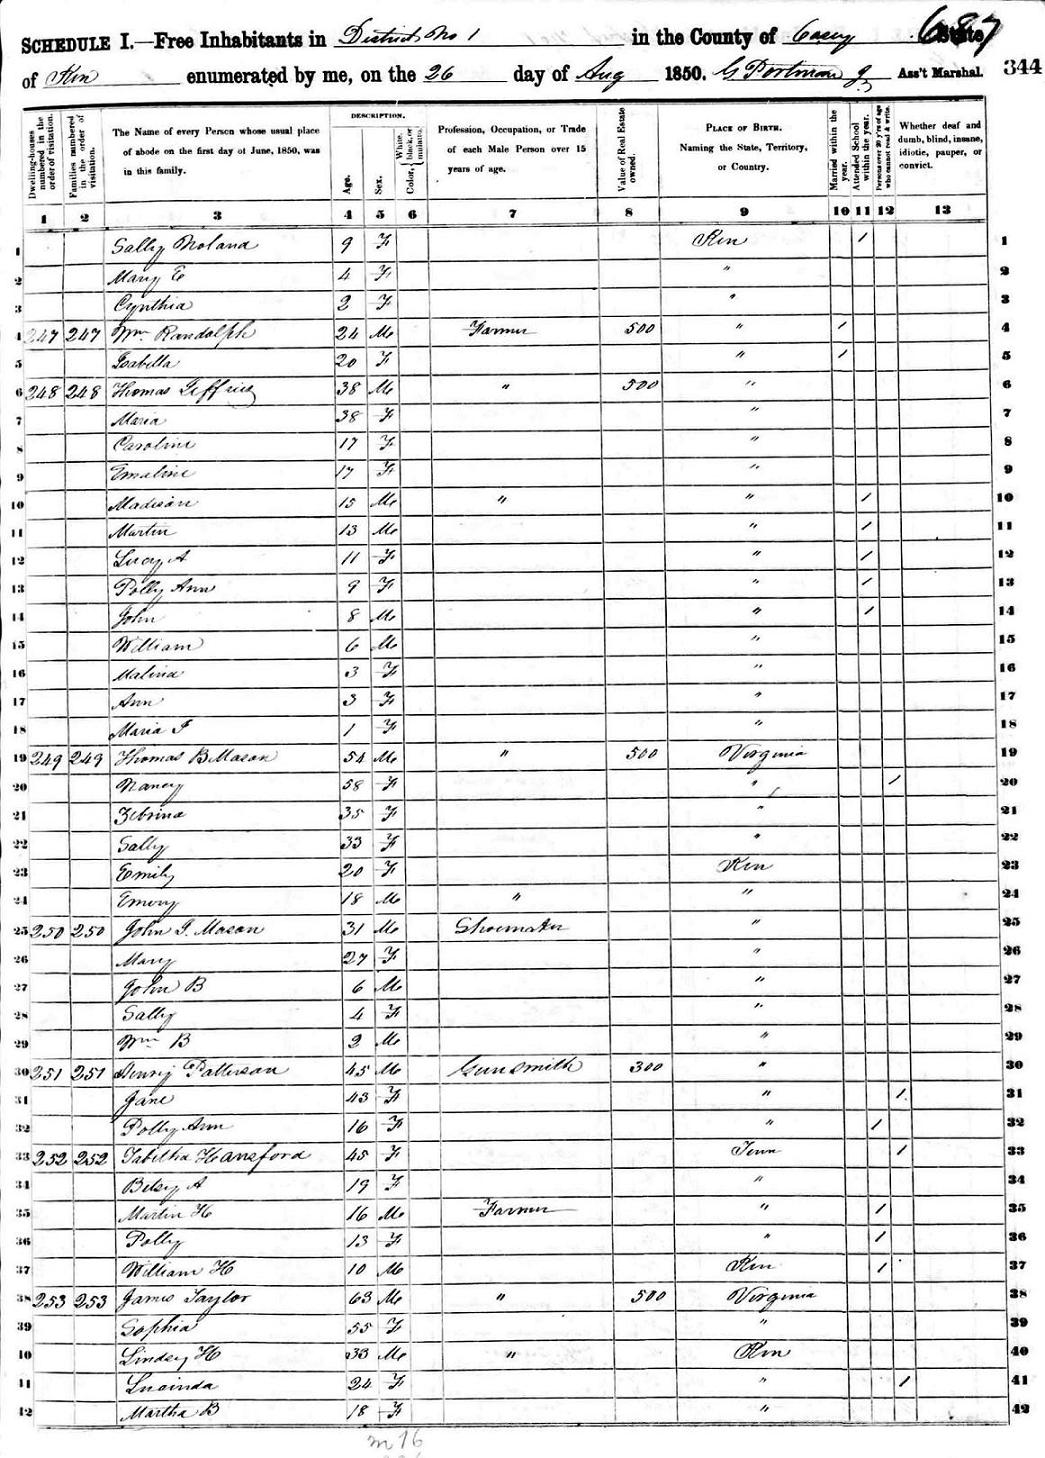 687
SCHEDULE I.—Free Inhabitants in District No 1 in the County of Casey State
of Ken enumerated by me, on the 26 day of Aug 1850. G Portman Jr Ass't Marshal. 344
Dwelling-houses numbered in the order of visitation. Families numbered in the order of visitation. The Name of every Person whose usual place of abode on the first day of June, 1850, was in this family. DESCRIPTION. Age. Sex. Color, White, black, or mulatto. Profession, Occupation, or Trade of each Male Person over 15 years of age. Value of Real Estate owned. PLACE OF BIRTH. Naming the State, Territory, or Country. Married within the year. Attended School within the year. Persons over 20 y'rs of age who cannot read & write. Whether deaf and dumb, blind, insane, idiotic, pauper, or convict.
1 2 3 4 5 6 7 8 9 10 11 12 13
1 Sally Noland 9 F Ken / 1
2 Mary E 4 F " 2
3 Cynthia 2 F " 3
4 247 247 Wm Randolph 24 M Farmer 500 " / 4
5 Isabella 20 F " / 5
6 248 248 Thomas Jeffries 38 M " 500 " 6
7 Maria 38 F " 7
8 Caroline 17 F " 8
9 Emaline 17 F " 9
10 Madison 15 M " " / 10
11 Martin 13 M " / 11
12 Lucy A 11 F " / 12
13 Polly Ann 9 F " / 13
14 John 8 M " / 14
15 William 6 M " 15
16 Malina 3 F " 16
17 Ann 3 F " 17
18 Maria F 1 F " 18
19 249 249 Thomas B Mason 54 M " 500 Virginia 19
20 Nancy 58 F " / 20
21 Zebrina 35 F " 21
22 Sally 33 F " 22
23 Emily 20 F Ken 23
24 Emery 18 M " " 24
25 250 250 John J. Mason 31 M Shoemaker " 25
26 Mary 27 F " 26
27 John B 6 M " 27
28 Sally 4 F " 28
29 Wm B 2 M " 29
30 251 251 Henry Patterson 45 M Gunsmith 300 " 30
31 Jane 43 F " / 31
32 Polly Ann 16 F " / 32
33 252 252 Tabitha Hansford 45 F Tenn / 33
34 Betsy A 19 F " 34
35 Martin H 16 M Farmer " / 35
36 Polly 13 F " / 36
37 William H 10 M Ken / 37
38 253 253 James Taylor 63 M " 500 Virginia 38
39 Sophia 55 F " 39
40 Lindsey H 33 M " Ken 40
41 Lucinda 24 F " / 41
42 Martha B 18 F " 42
m 16